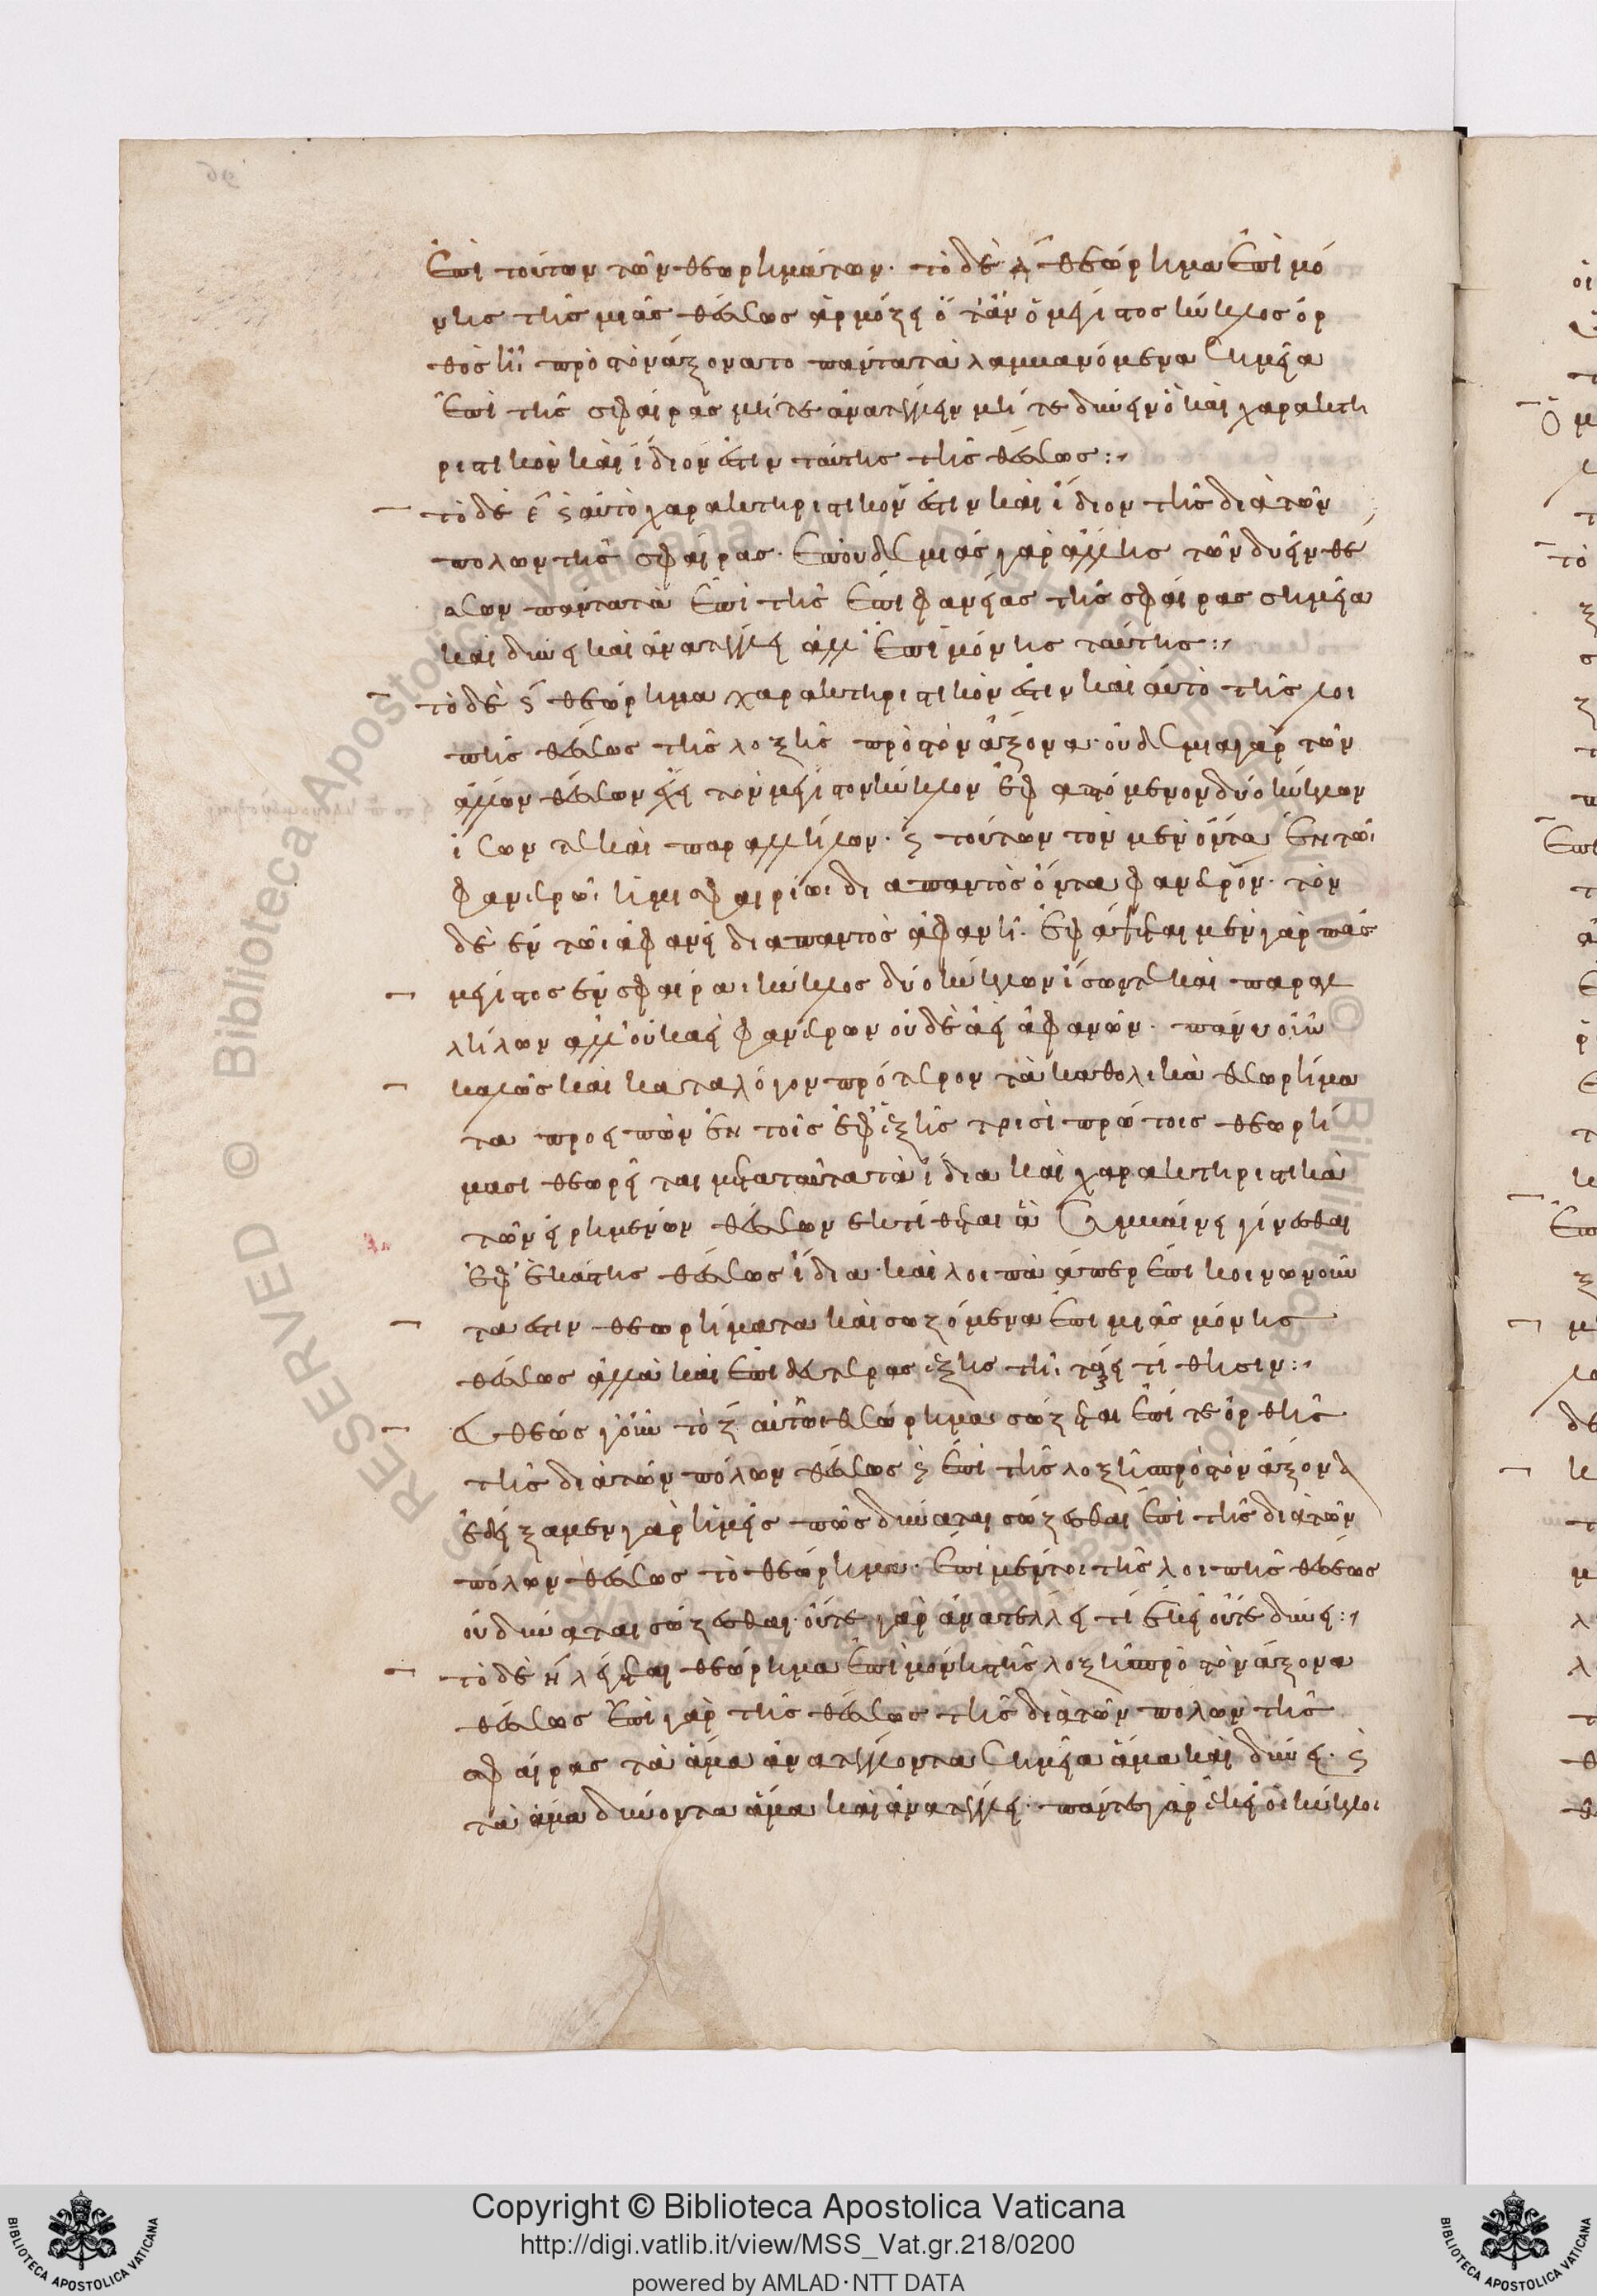 ἐπὶ τούτων τῶν θεωρημάτων. τὸ δὲ δ̄ θεώρημα ἐπὶ μό
νης τῆς μιᾶς θέσεως ἁρμόζει ὅταν ὁ μέγιστος κύκλος ὀρ
θὸς ἦι πρὸς τὸν ἄξονα το πάντα τὰ λαμβανόμενα σημεῖα
ἐπὶ τῆς σφαίρας μήτε ἀνατέλλειν μήτε δύνειν ὃ καὶ χαρακτη
ριστικὸν καὶ ἴδιόν ἐστιν ταύτης τῆς θέσεως:
τὸ δὲ ε̄ ϗ αὐτὸ χαρακτηριστικόν ἐστιν καὶ ἴδιον τῆς διὰ τῶν
πόλων τῆς σφαίρας. ἐπ' οὐδεμιᾶς γὰρ ἄλλης τῶν δυεῖν θέ
σεων πάντα τὰ ἐπὶ τῆς ἐπιφανείας τῆς σφαίρας σημεῖα
καὶ δύνει καὶ ἀνατέλλει ἀλλ' ἐπὶ μόνης ταύτης:
τὸ δὲ ϛ̄ θεώρημα χαρακτηριστικόν ἐστιν καὶ αὐτὸ τῆς λοι
πῆς θέσεως τῆς λοξῆς πρὸς τὸν ἄξονα· οὐδεμία γὰρ τῶν
ἄλλων θέσεων ἔχει τὸν μέγιστον κύκλον ἐφαπτόμενον δύο κύκλων
ἴσων τε καὶ παραλλήλων. ϗ τούτων τὸν μὲν ὄντα ἐν τῶι
φανερῶι ἡμισφαιρίωι διαπαντὸς ὄντα φανερόν. τὸν
δὲ ἐν τῶι ἀφανεῖ διαπαντὸς ἀφανῆ. ἐφάπτεται μὲν γὰρ πᾶς
μέγιστος ἐν σφαίραι κύκλος δύο κύκλων ἴσων τε καὶ παραλ
λήλων ἀλλ' οὐκ ἀεὶ φανερῶν οὐδὲ ἀεὶ ἀφανῶν. πάνυ οὖν
καλῶς καὶ κατα λόγον πρότερον τὰ καθολικὰ θεωρήμα
τα προειπὼν ἐν τοῖς ἐφεξῆς τρισὶ πρώτοις θεωρή
μασι θεωρεῖται μετὰ ταῦτα τὰ ἴδια καὶ χαρακτηριστικὰ
τῶν εἰρημένων θέσεων ἐκτίθεται ἃ συμβαίνει γίνεσθαι
ἐφ' ἑκάστης θέσεως ἴδια· καὶ λοιπὰ ἅπερ ἐπικοινωνοῦν
τα ἐστιν θεωρήματα καὶ σωζόμενα ἐπι μιᾶς μόνης
θέσεως ἀλλὰ καὶ ἐπὶ δευτέρας ἑξῆς τῆι τάξει τίθησιν:
εὐθέως γοῦν τὸ ζ̄ αὐτῶι θεώρημα σώζεται ἐπί τε ὀρθῆς
τῆς διὰ τῶν πόλων θέσεως ϗ ἐπὶ τῆς λοξῆς πρὸς τὸν ἄξονα
ἐδείξαμεν γὰρ ἡμεῖς πῶς δύναται σώζεσθαι ἐπὶ τῆς διὰ τῶν
πόλων θέσεως τὸ θεώρημα. ἐπὶ μέντοι τῆς λοιπῆς θέσεως
οὐ δύναται σώζεσθαι. οὔτε γὰρ ἀνατέλλει τί ἐκεῖ οὔτε δύνει:
τὸ δὲ η̄ λέγεται θεώρημα ἐπὶ μόνης τῆς λοξῆς πρὸς τὸν ἄξονα
θέσεως ἐπὶ γὰρ τῆς θέσεως τῆς διὰ τῶν πόλων τῆς
σφαίρας τὰ ἅμα ἀνατέλλοντα σημεῖα ἅμα καὶ δύνει. ϗ
τὰ ἅμα δύνοντα ἅμα καὶ ἀνατέλλει. πάντες γὰρ ἐκεῖ οἱ κύκλοι
Copyright © Biblioteca Apostolica Vaticana
http://digi.vatlib.it/view/MSS_Vat.gr.218/0200
powered by AMLAD·NTT DATA